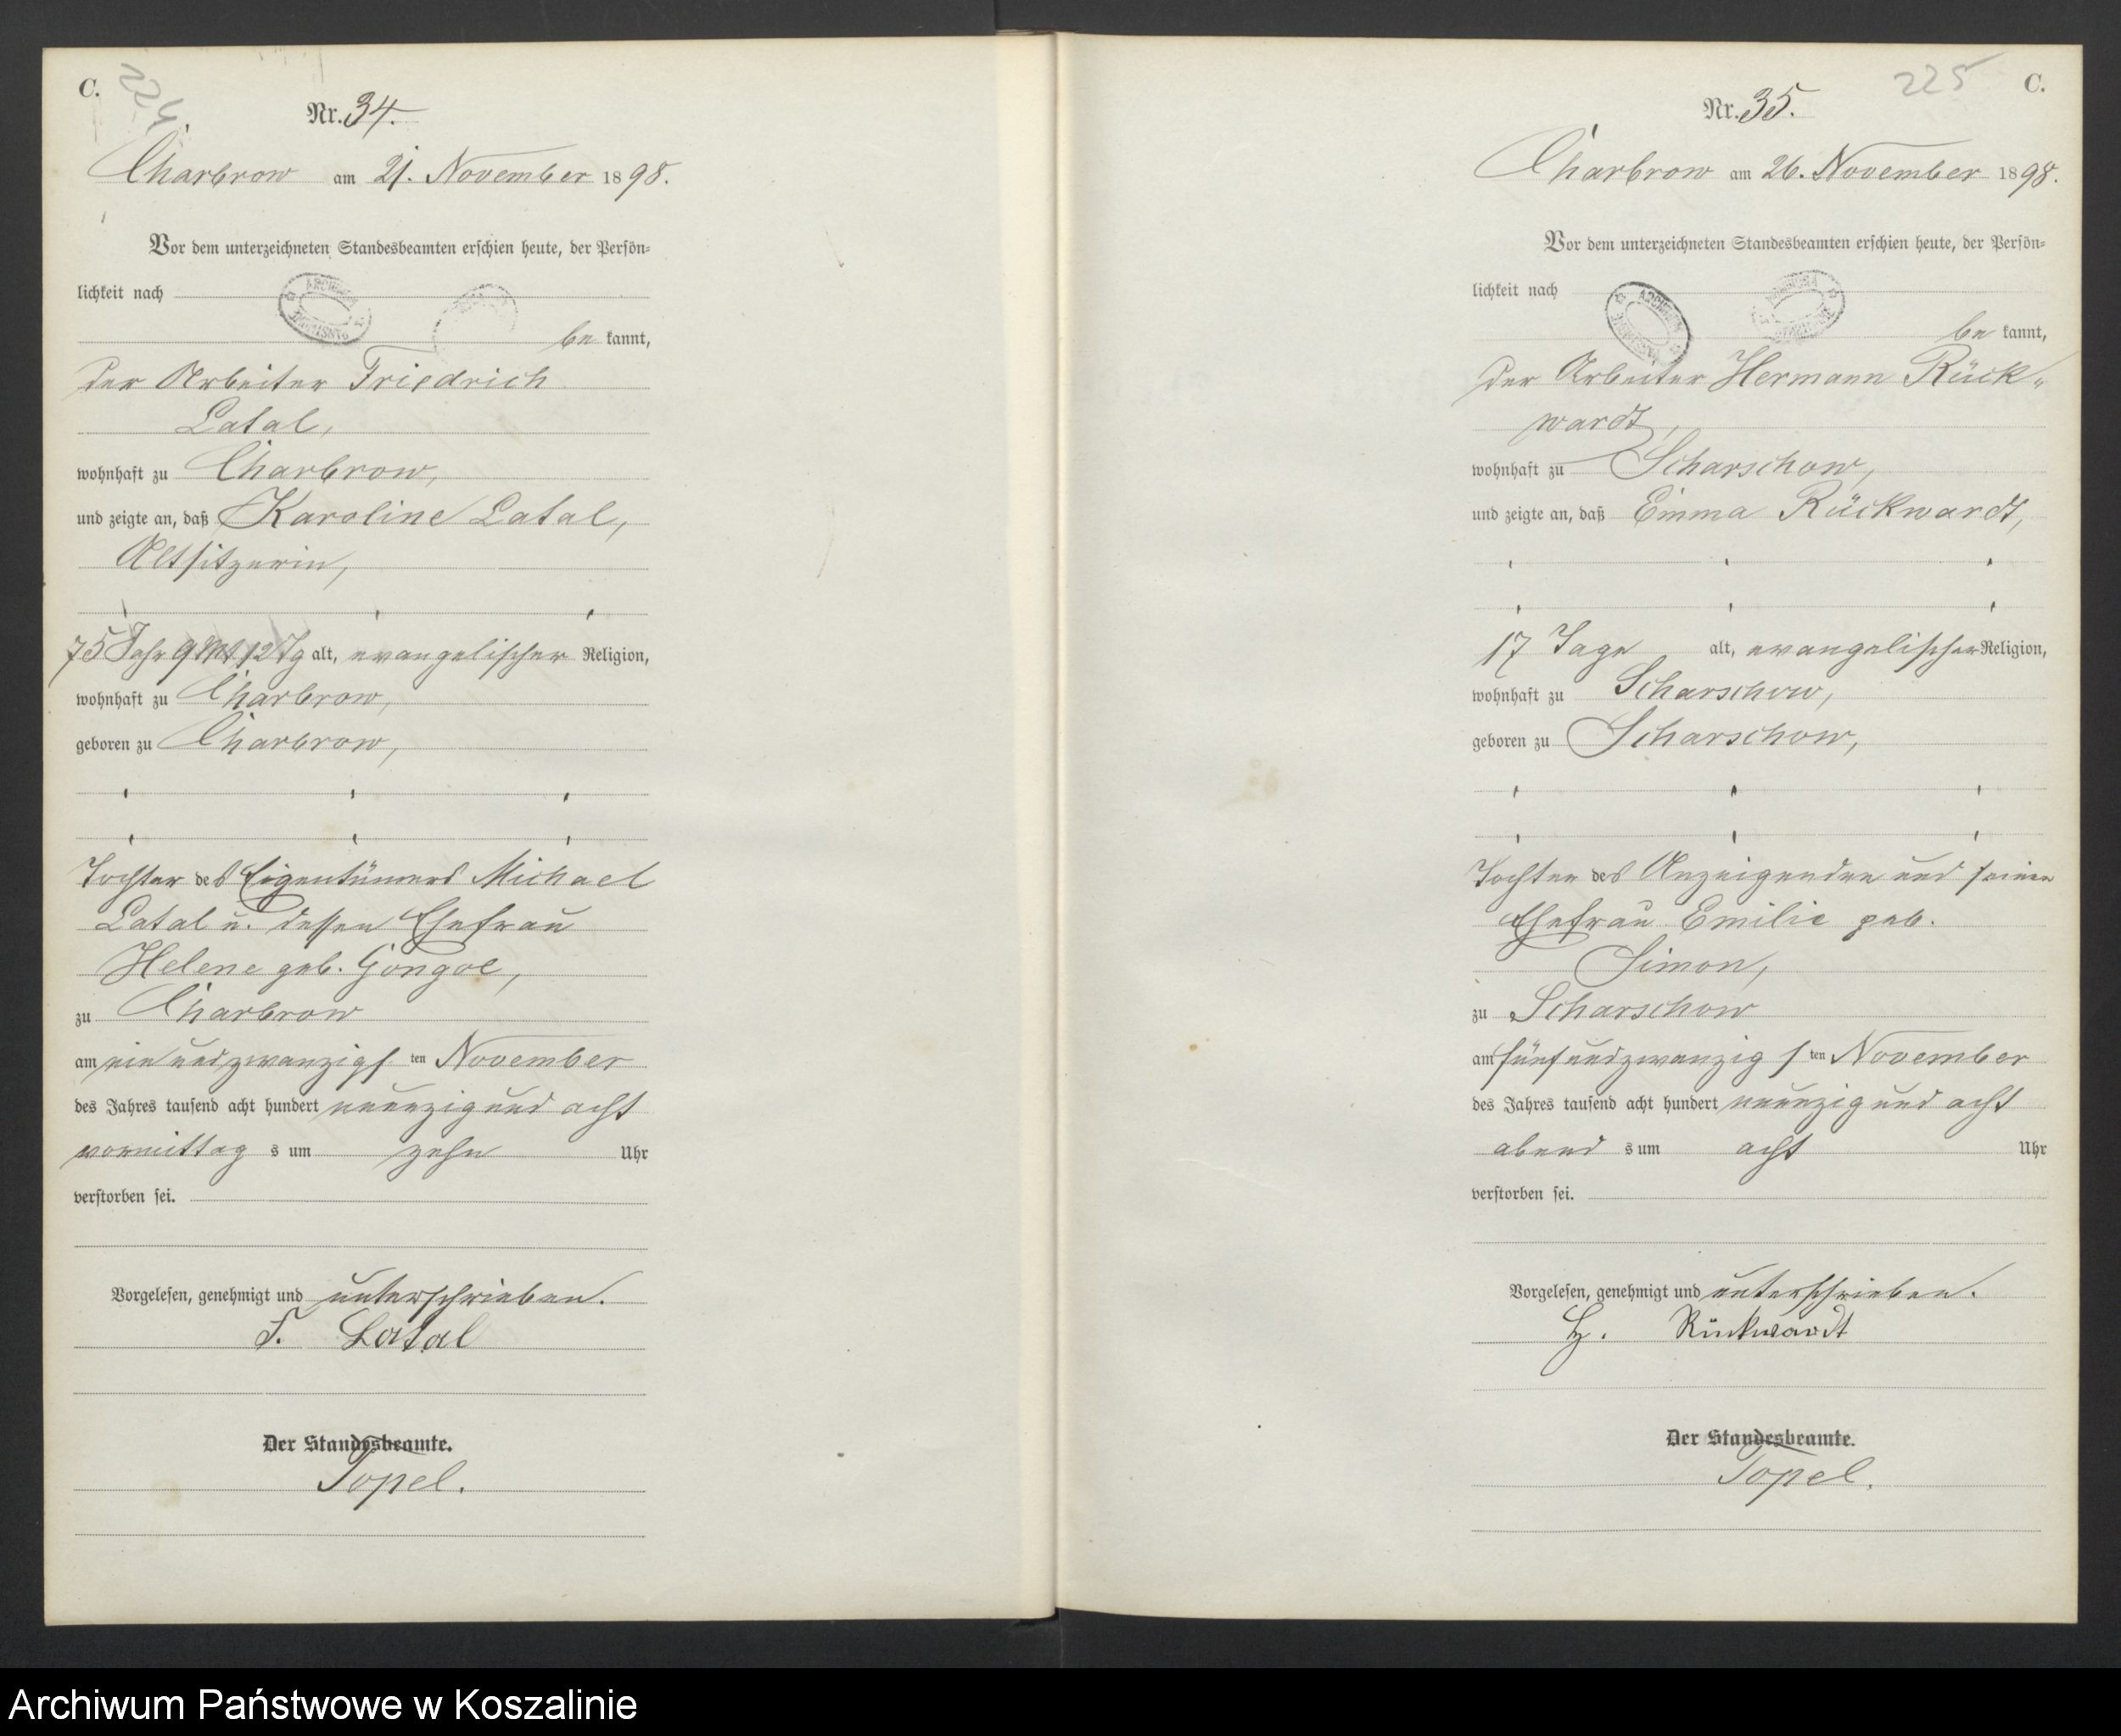 C.
224
Nr. 34.
Charbrow am 21. November 1898.
Vor dem unterzeichneten Standesbeamten erschien heute, der Persön-
lichkeit nach
be kannt,
der Arbeiter Friedrich
Latal,
wohnhaft zu Charbrow,
und zeigte an, daß Karoline Latal,
Altsitzerin,
75 Jahr 9 Mt 12 Tg alt, evangelischer Religion,
wohnhaft zu Charbrow,
geboren zu Charbrow,
Tochter des Eigentümers Michael
Latal u. dessen Ehefrau
Helene geb. Gongoe,
zu Charbrow
am ein und zwanzigs ten November
des Jahres tausend acht hundert neunzig und acht
vormittag s um zehn Uhr
verstorben sei.
Vorgelesen, genehmigt und unterschrieben.
F. Latal
Der Standesbeamte.
Topel.
225
C.
Nr. 35.
Charbrow am 26. November 1898.
Vor dem unterzeichneten Standesbeamten erschien heute, der Persön-
lichkeit nach
be kannt,
der Arbeiter Hermann Rück-
wardt,
wohnhaft zu Scharschow,
und zeigte an, daß Emma Rückwardt,
17 Tage alt, evangelischer Religion,
wohnhaft zu Scharschow,
geboren zu Scharschow,
Tochter des Anzeigenden und seiner
Ehefrau Emilie geb.
Simon,
zu Scharschow
am fünf und zwanzig s ten November
des Jahres tausend acht hundert neunzig und acht
abend s um acht Uhr
verstorben sei.
Vorgelesen, genehmigt und unterschrieben.
H. Rückwardt
Der Standesbeamte.
Topel.
Archiwum Państwowe w Koszalinie